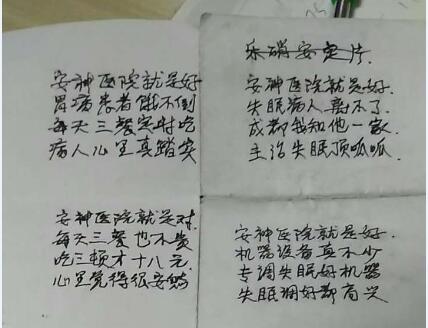 安神医院就是好
胃病患者饿不倒
每天三餐定时吃
病人心里真踏实
安神医院就是对.
每天三餐也不贵
吃三顿才十八元.
心里觉得很安慰
乐硝安定片.
安神医院就是好.
失眠病人离不了.
成都我知他一家.
主治失眠顶呱呱.
安神医院就是好.
机器设备真不少
专调失眠好机器
失眠调好都高兴